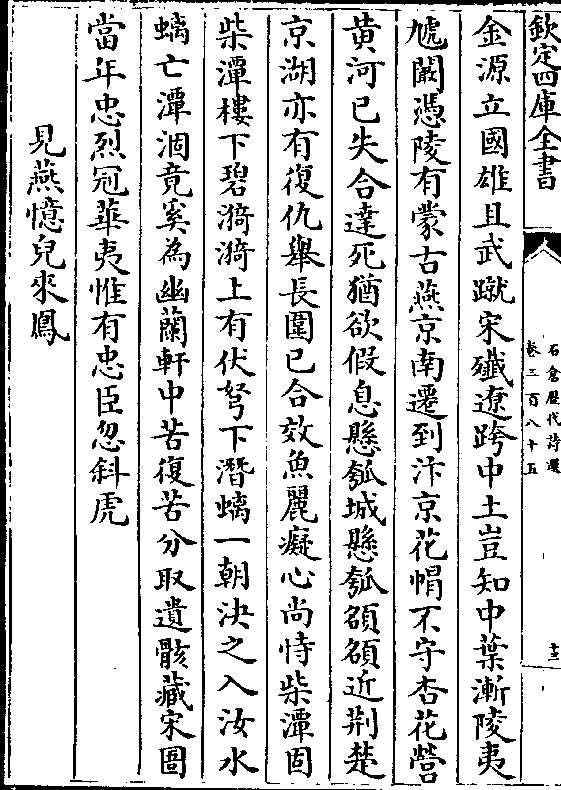 欽定四庫全書
石倉歷代詩選
卷三百八十五
十三
金源立國雄且武蹴宋殲遼跨中土豈知中葉漸陵夷
虓闞憑陵有蒙古燕京南遷到汴京花帽不守杏花營
黄河已失合達死猶欲假息懸瓠城懸瓠頟頟近荆楚
京湖亦有復仇舉長圍已合效魚麗癡心尚恃柴潭固
柴潭樓下碧漪漪上有伏弩下潛螭一朝決之入汝水
螭亡潭涸竟奚為幽蘭軒中苦復苦分取遺骸藏宋圖
當年忠烈冠華夷惟有忠臣忽斜虎
見燕憶兒來鳳